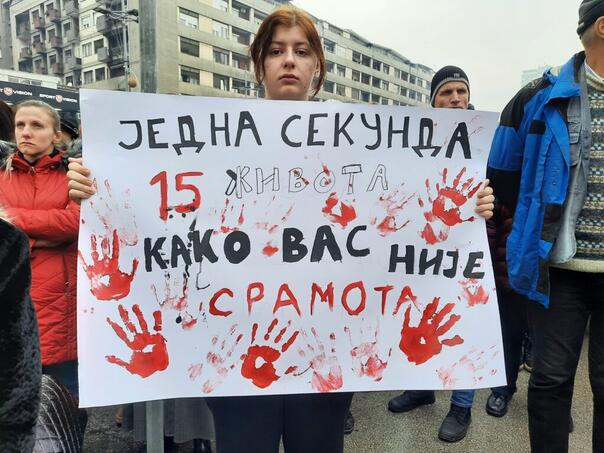 SPORT VISION
ЈЕДНА СЕКУНДА
15 ЖИВОТА
КАКО ВАС НИЈЕ
СРАМОТА